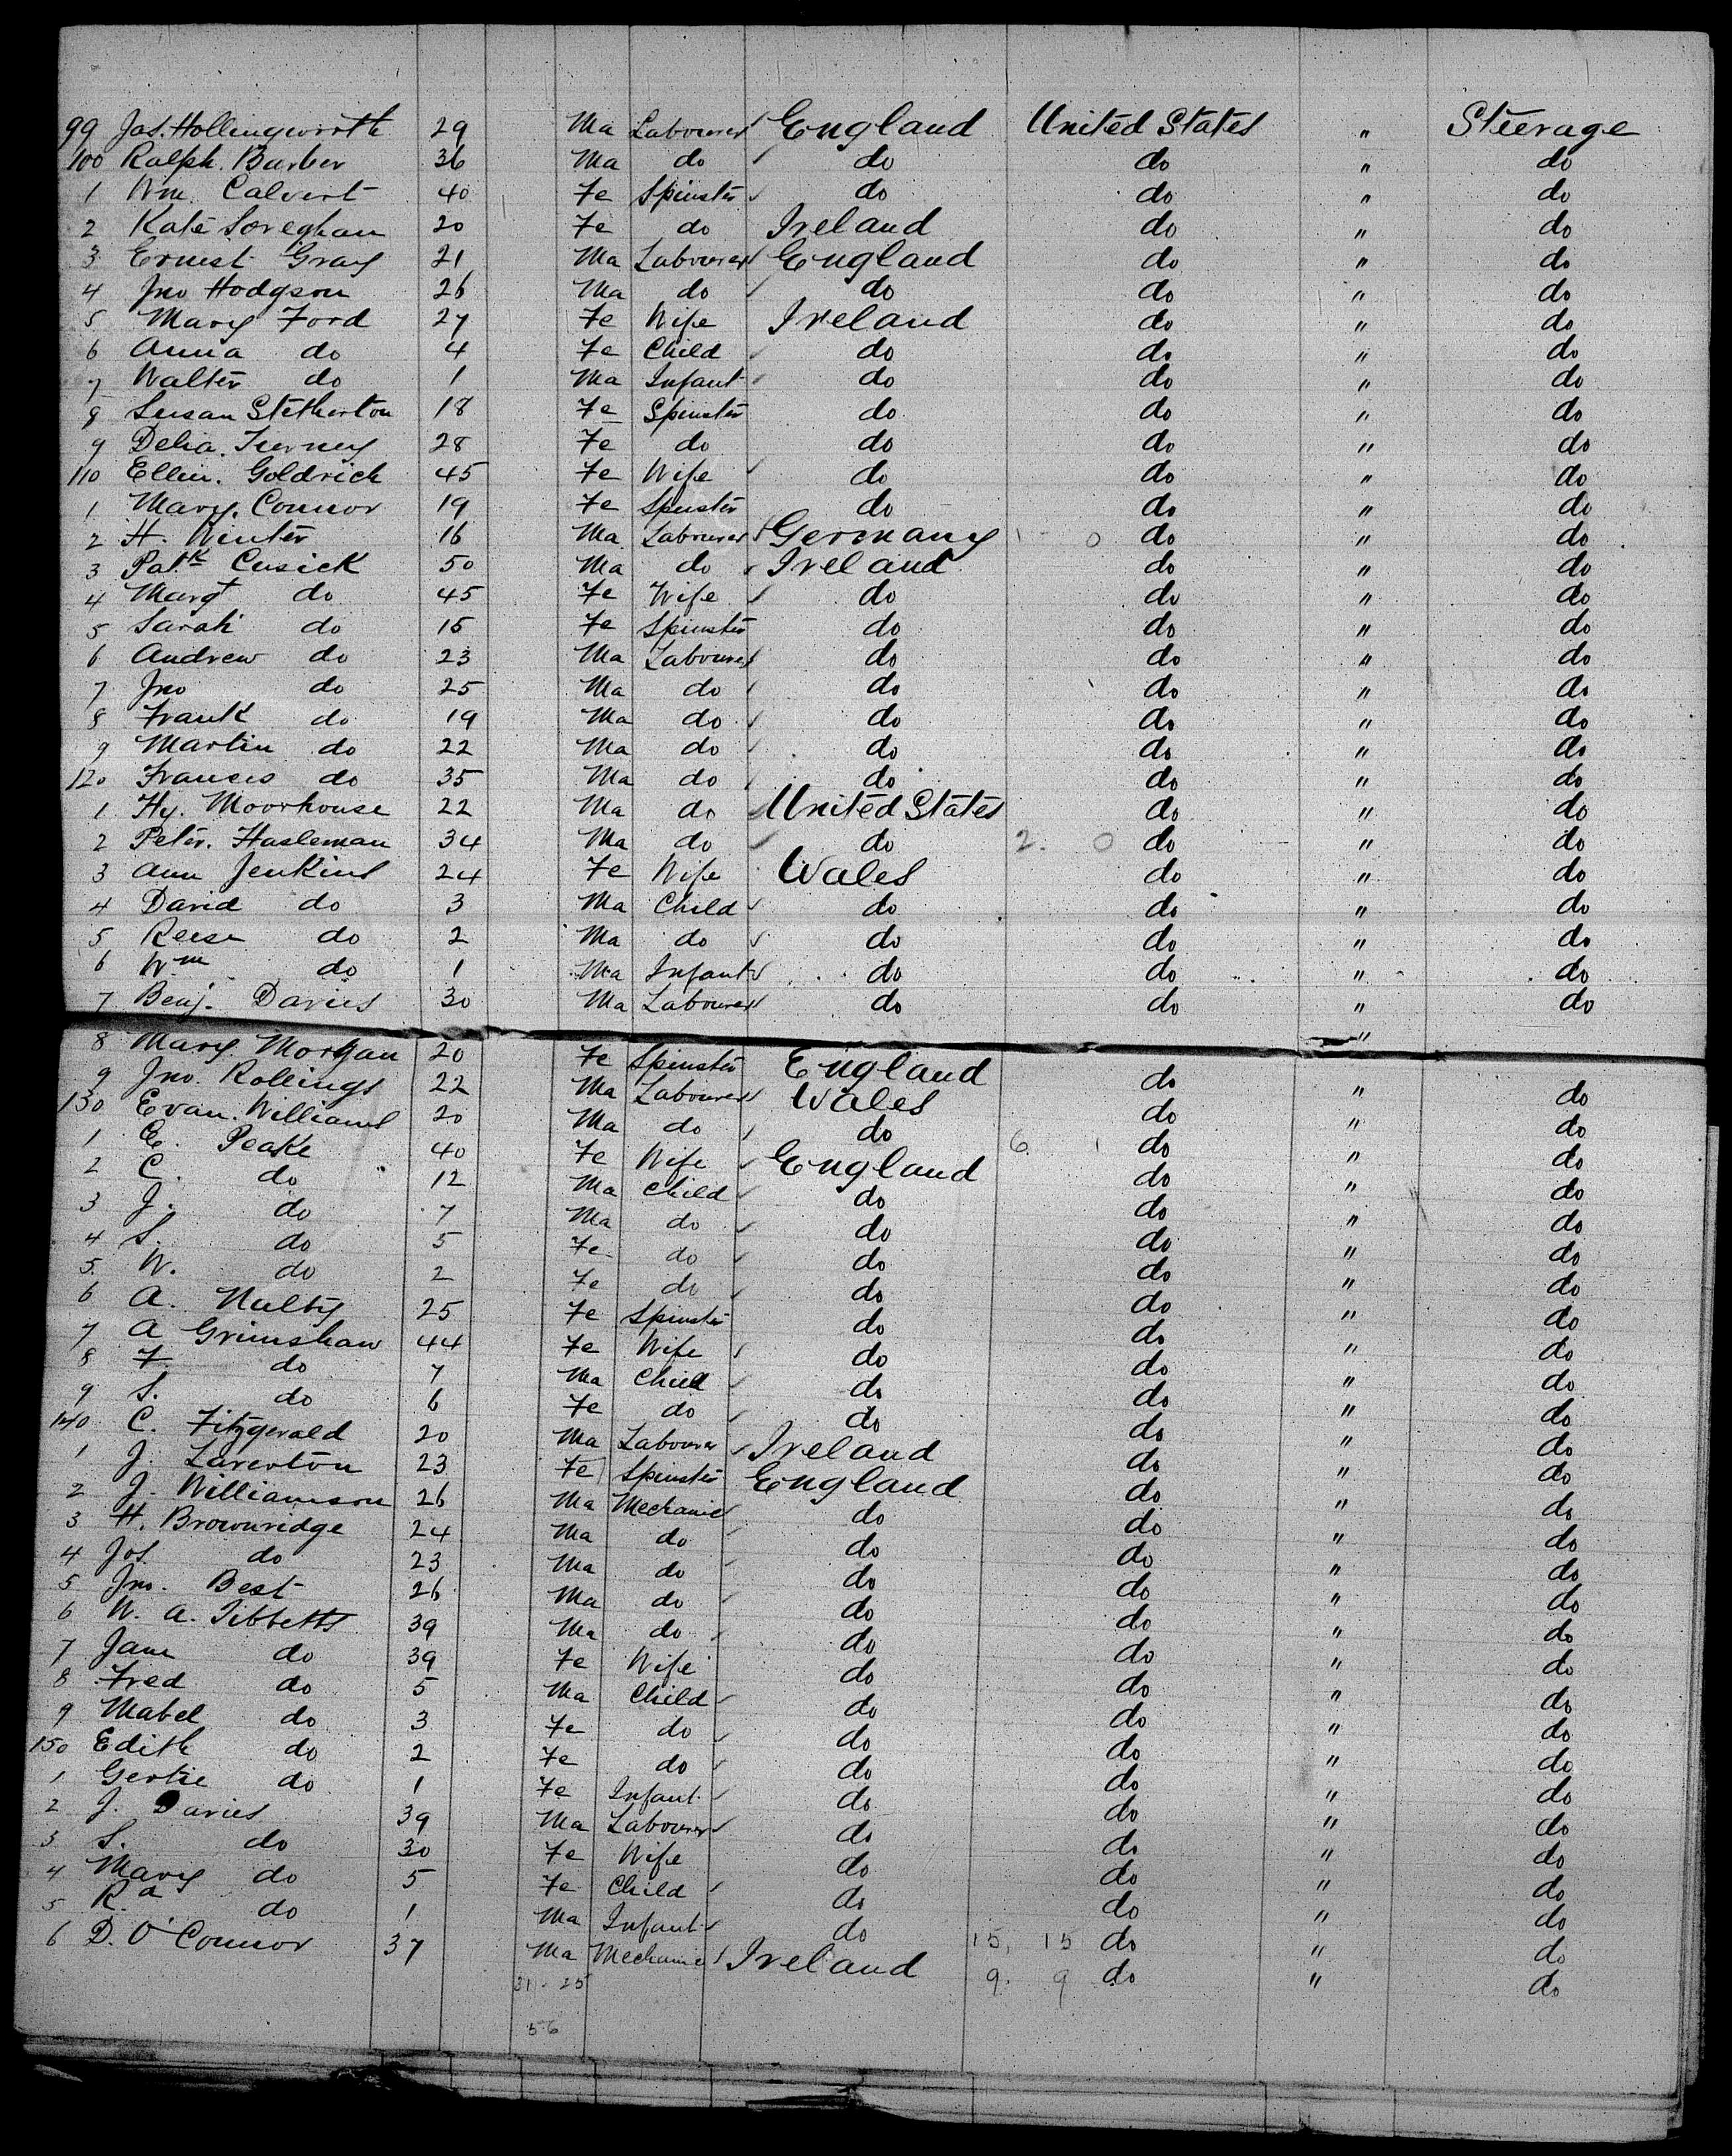 99 Jas. Hollingworth 29 Ma Labourer England United States " Steerage
100 Ralph. Barber 36 Ma do do do " do
1 Wm. Calvert 40 Fe Spinster do do " do
2 Kate 20 Fe do Ireland do " do
3 Ernest Gray 21 Ma Labourer England do " do
4 Jno Hodgson 26 Ma do do do " do
5 Mary Ford 27 Fe Wife Ireland do " do
6 Anna do 4 Fe Child do do " do
7 Walter do 1 Ma Infant do do " do
8 Susan Stetherton 18 Fe Spinster do do " do
9 Delia. Tierney 28 Fe do do do " do
110 Ellen. Goldrick 45 Fe Wife do do " do
1 Mary. Connor 19 Fe Spinster do do " do
2 H. Winter 16 Ma Labourer Germany 1 0 do " do
3 Patk Cusick 50 Ma do Ireland do " do
4 Margt do 45 Fe Wife do do " do
5 Sarah do 15 Fe Spinster do do " do
6 Andrew do 23 Ma Labourer do do " do
7 Jno do 25 Ma do do do " do
8 Frank do 19 Ma do do do " do
9 Martin do 22 Ma do do do " do
120 Frances do 35 Ma do do do " do
1 Hy. Moorhouse 22 Ma do United States do " do
2 Peter. Hasleman 34 Ma do do 2. 0 do " do
3 Ann Jenkins 24 Fe Wife Wales do " do
4 David do 3 Ma Child do do " do
5 Reese do 2 Ma do do do " do
6 Wm do 1 Ma Infant do do " do
7 Benj. Davies 30 Ma Labourer do do " do
8 Mary Morgan 20 Fe Spinster England do " do
9 Jno. Rollings 22 Ma Labourer Wales do " do
130 Evan. Williams 20 Ma do do 6 1 do " do
1 E. Peake 40 Fe Wife England do " do
2 C. do 12 Ma Child do do " do
3 J. do 7 Ma do do do " do
4 S. do 5 Fe do do do " do
5. W. do 2 Fe do do do " do
6 A. Nulty 25 Fe Spinster do do " do
7 A Grimshaw 44 Fe Wife do do " do
8 F. do 7 Ma Child do do " do
9 S. do 6 Fe do do do " do
140 C. Fitzgerald 20 Ma Labourer Ireland do " do
1 J. Laverton 23 Fe Spinster England do " do
2 J. Williamson 26 Ma Mechanic do do " do
3 H. Brownridge 24 Ma do do do " do
4 Jos. do 23 Ma do do do " do
5 Jno. Best 26 Ma do do do " do
6 W. A. Tibbetts 39 Ma do do do " do
7 Jane do 39 Fe Wife do do " do
8 Fred do 5 Ma Child do do " do
9 Mabel do 3 Fe do do do " do
150 Edith do 2 Fe do do do " do
1 Gertie do 1 Fe Infant do do " do
2 J. Davies 39 Ma Labourer do do " do
3 S. do 30 Fe Wife do do " do
4 Mary do 5 Fe Child do do " do
5 Rd do 1 Ma Infant do 15, 15 do " do
6 D. O'Connor 37 Ma Mechanic Ireland 9. 9 do " do
31 - 25
56